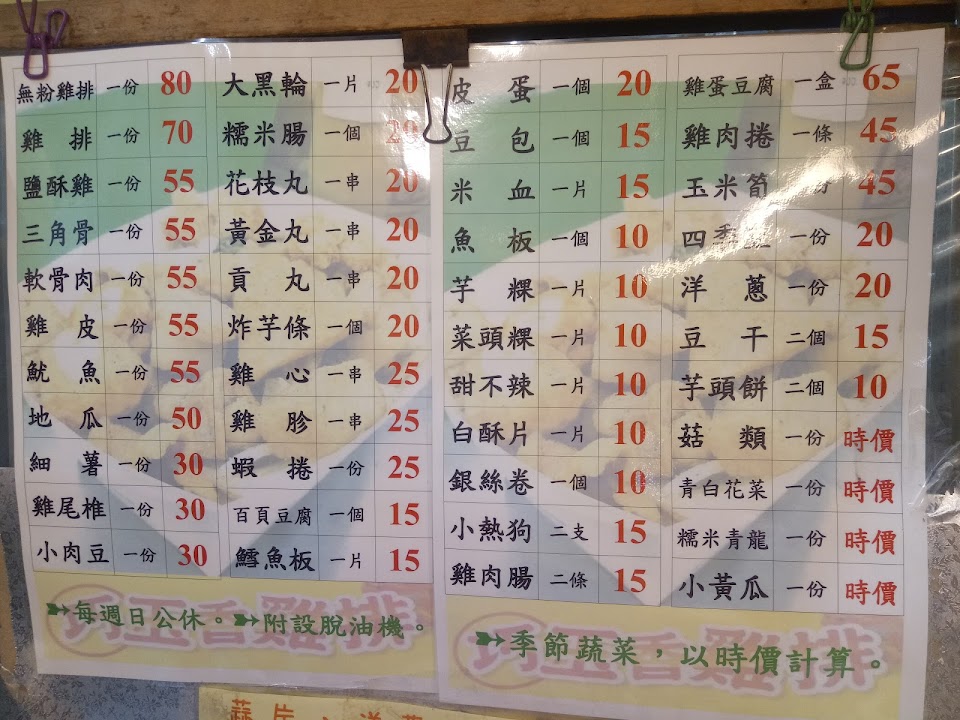 無粉雞排 一份 80
雞排 一份 70
鹽酥雞 一份 55
三角骨 一份 55
軟骨肉 一份 55
雞皮 一份 55
魷魚 一份 55
地瓜 一份 50
細薯 一份 30
雞尾椎 一份 30
小肉豆 一份 30
大黑輪 一片 20
糯米腸 一個 20
花枝丸 一串 20
黃金丸 一串 20
貢丸 一串 20
炸芋條 一個 20
雞心 一串 25
雞胗 一串 25
蝦捲 一份 25
百頁豆腐 一個 15
鱈魚板 一片 15
巧玉香雞排
每週日公休。附設脫油機。
皮蛋 一個 20
豆包 一個 15
米血 一片 15
魚板 一個 10
芋粿 一片 10
菜頭粿 一片 10
甜不辣 一片 10
白酥片 一片 10
銀絲卷 一個 10
小熱狗 二支 15
雞肉腸 二條 15
雞蛋豆腐 一盒 65
雞肉捲 一條 45
玉米筍 份 45
四季 一份 20
洋蔥 一份 20
豆干 二個 15
芋頭餅 二個 10
菇類 一份 時價
青白花菜 一份 時價
糯米青龍 一份 時價
小黃瓜 一份 時價
巧玉香雞排
季節蔬菜，以時價計算。